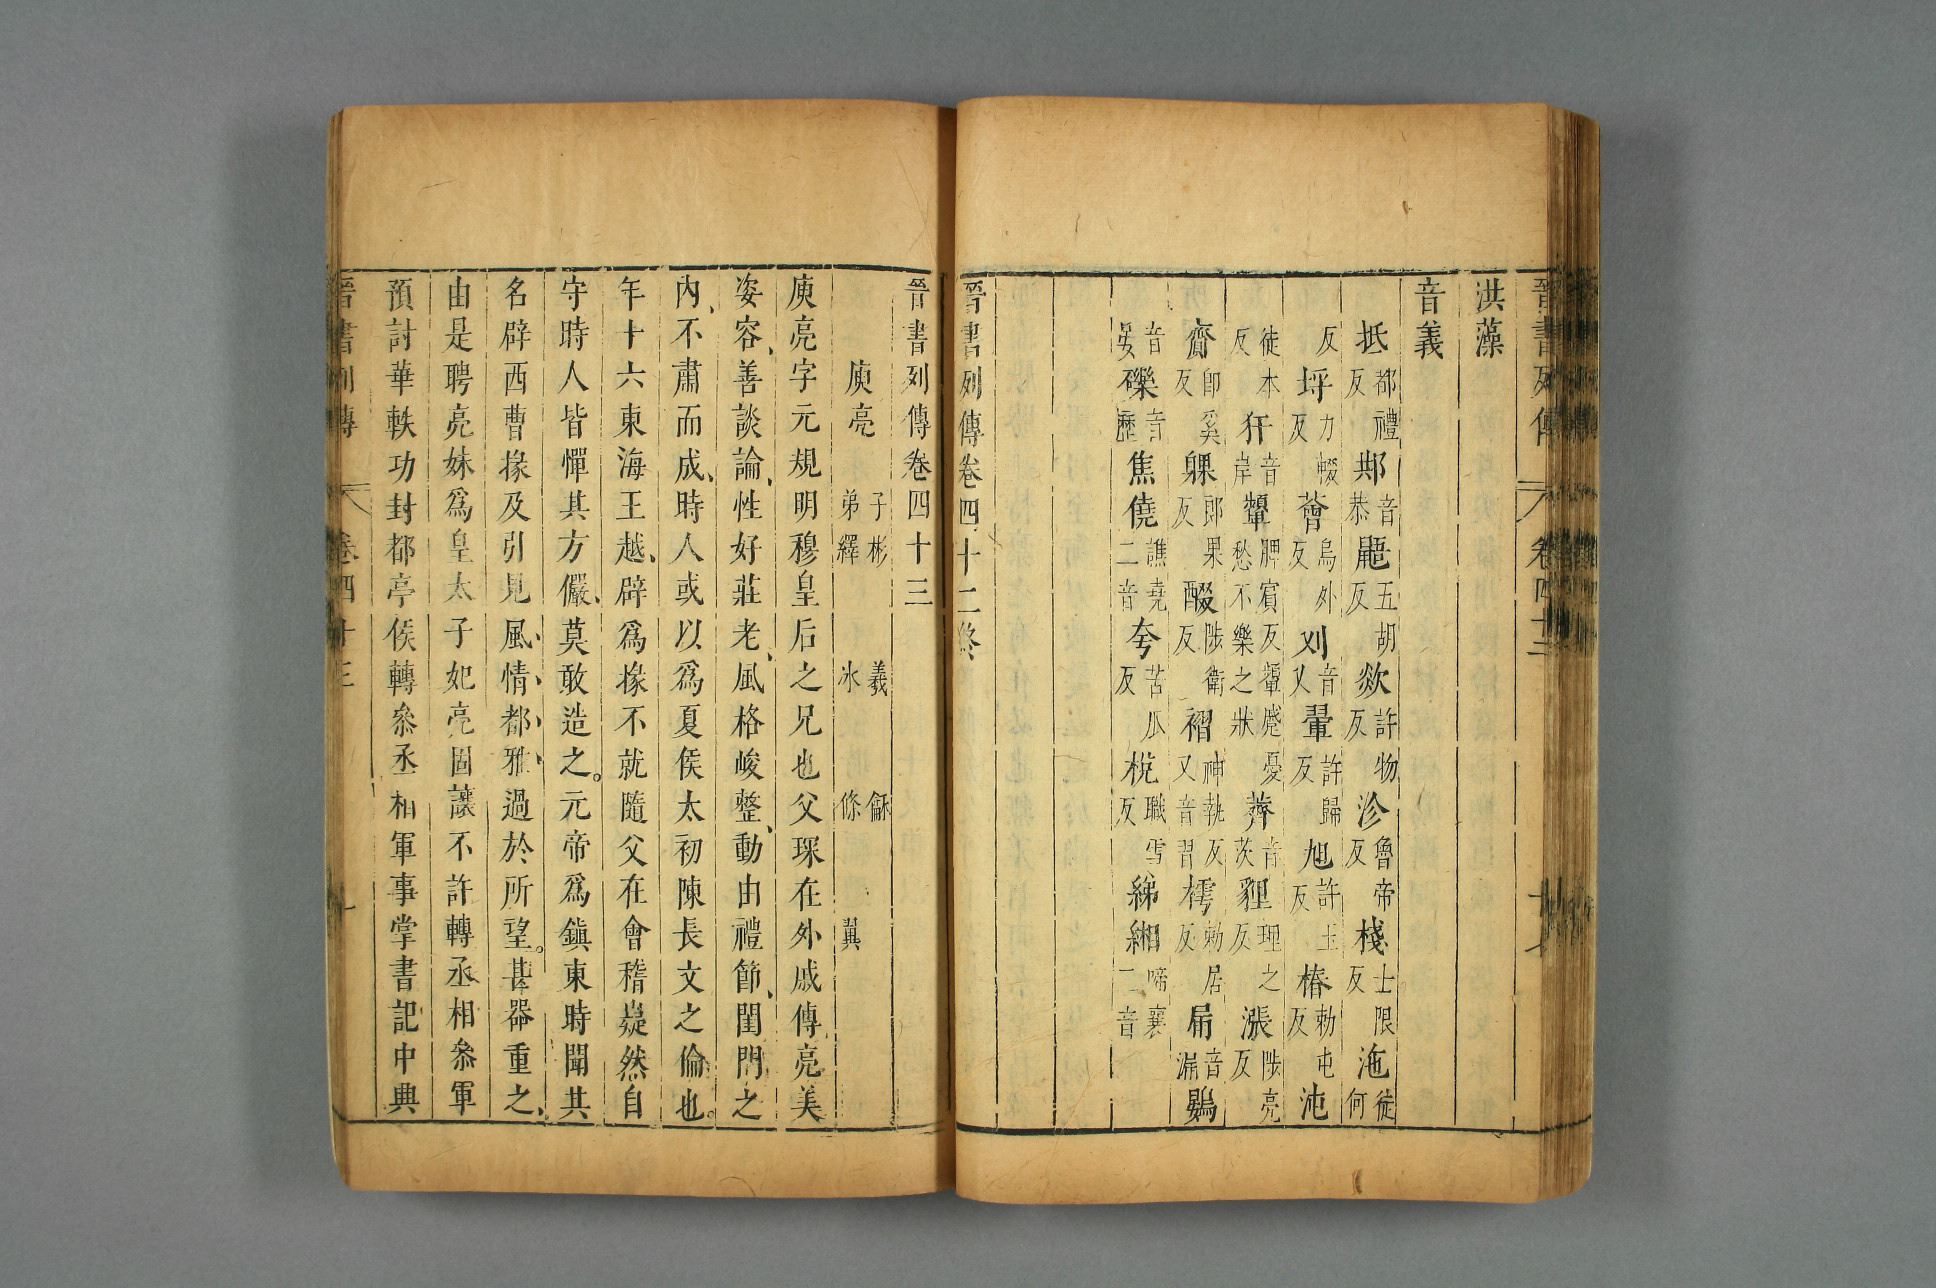 晉書列傳 卷四十二
洪藻
音義
抵都禮反 邞音恭 鼯五胡反 欻許物反 沴魯帝反 棧士限反 沲徒何
反 埒力輟反 薈烏外反 刈音又 翬許歸反 旭許玉反 椿勅屯反 沌
徒本反 犴音岸 顰脾賓反顰蹙憂愁不樂之狀 薋音茨 貍理之反 漲陟亮反
齎卽奚反 躶郎果反 醊陟衛反 褶神執反又音習 樗勅居反 屚音漏 鷃
音晏 礫音歷 焦僥譙堯二音 夸苦瓜反 梲職雪反 綈緗啼襄二音
晉書列傳卷四十二終
晉書列傳卷四十三
庾亮 子彬 弟繹 羲 冰 龢 條 翼
庾亮字元規明穆皇后之兄也父琛在外戚傳亮美
姿容、善談論、性好莊老、風格峻整、動由禮節、閨門之
內、不肅而成、時人或以爲夏侯太初陳長文之倫也。
年十六東海王越、辟爲掾不就隨父在會稽嶷然自
守時人皆憚其方儼、莫敢造之。元帝爲鎭東時聞其
名辟西曹掾及引見風、情、都、雅、過於所望。甚器重之、
由是聘亮妹爲皇太子妃亮固讓不許轉丞相參軍
預討華軼功封都亭侯轉參丞相軍事掌書記中典
晉書列傳 卷四十三 一